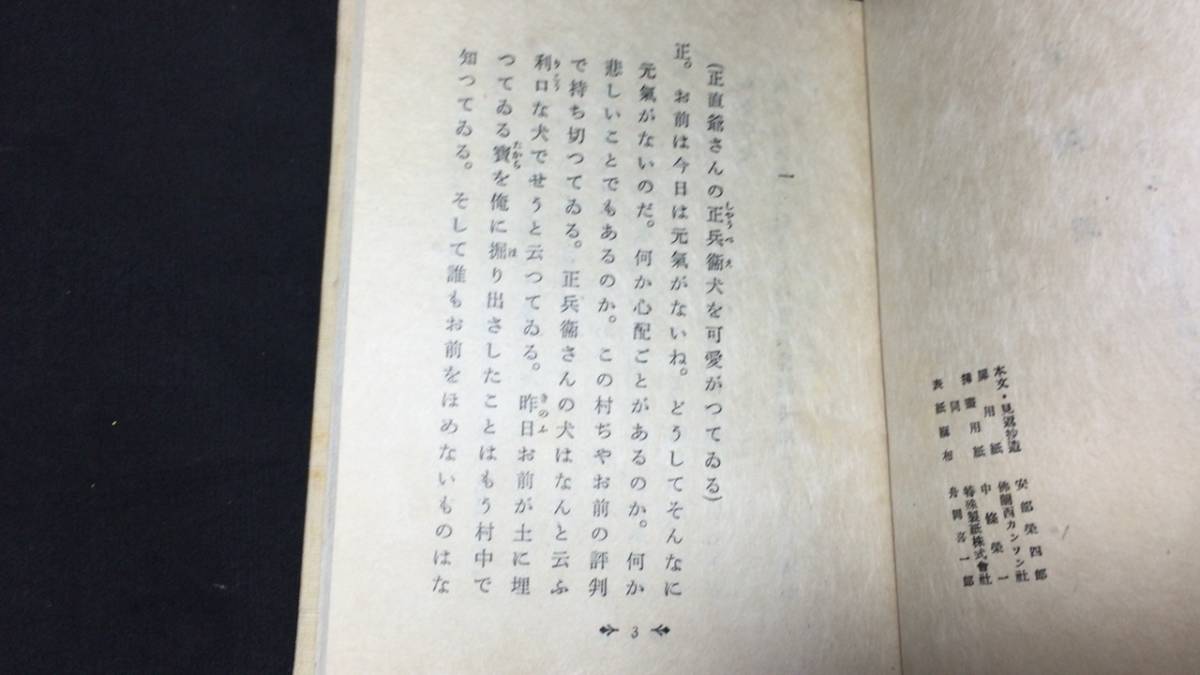 本文・見返抄造 安部榮四郎
扉用紙 佛蘭西カンソン社
揷畫用紙 中條榮一
同 特殊製紙株式會社
表紙 舟岡喜一郎
一
(正直爺さんの正兵衞犬を可愛がつてゐる)
しやうべゑ
正。お前は今日は元氣がないね。どうしてそんなに
元氣がないのだ。何か心配ごとがあるのか。何か
悲しいことでもあるのか。この村ぢやお前の評判
で持ち切つてゐる。正兵衞さんの犬はなんと云ふ
利口な犬でせうと云つてゐる。昨日お前が土に埋
りこう
きのふ
つてゐる寶を俺に掘り出さしたことはもう村中で
たから
ほ
知つてゐる。そして誰もお前をほめないものはな
3